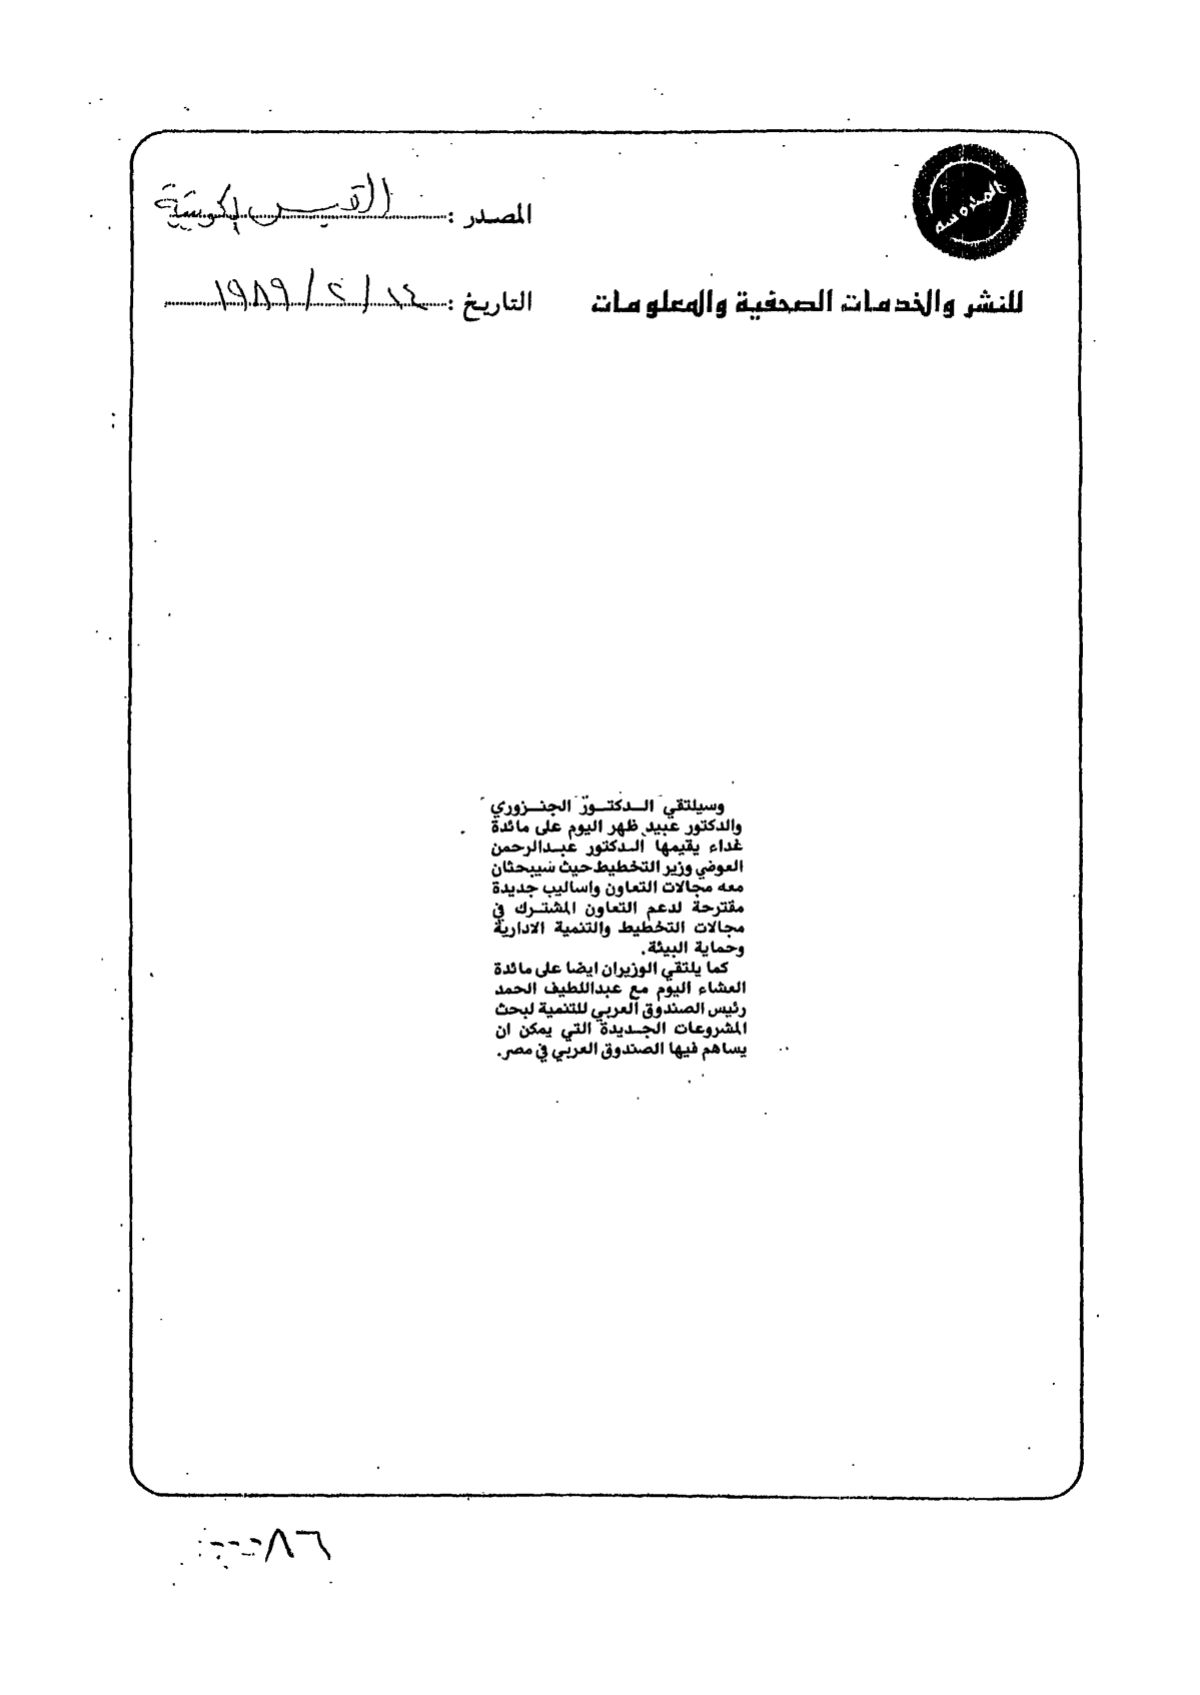 المصدر : القبس الكويتية
للنشر والخدمات الصحفية والمعلومات
التاريخ : ١٤ / ٢ / ١٩٨٩
وسيلتقي الــدكتــور الجنــزوري
والدكتور عبيد ظهر اليوم على مائدة
غداء يقيمها الدكتور عبدالرحمن
العوضي وزير التخطيط حيث سيبحثان
معه مجالات التعاون واساليب جديدة
مقترحة لدعم التعاون المشترك في
مجالات التخطيط والتنمية الادارية
وحماية البيئة.
كما يلتقي الوزيران ايضا على مائدة
العشاء اليوم مع عبداللطيف الحمد
رئيس الصندوق العربي للتنمية لبحث
المشروعات الجديدة التي يمكن ان
يساهم فيها الصندوق العربي في مصر.